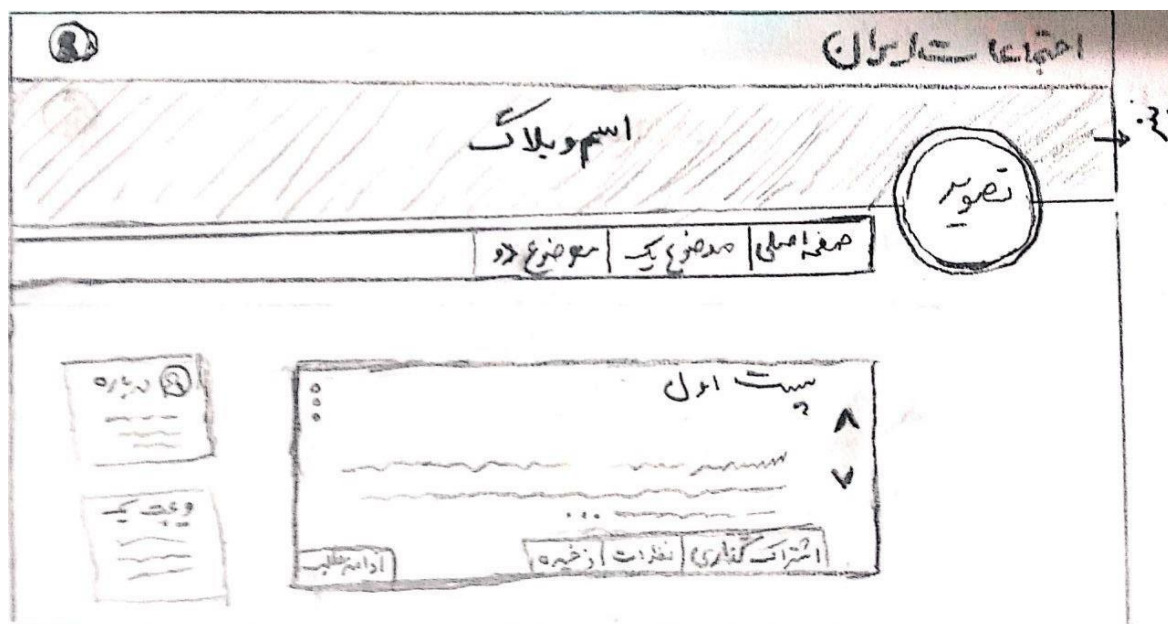 اجتماعات ایران
اسم وبلاگ
تصویر
صفحه اصلی | موضوع یک | موضوع دو
پست اول
درباره
...
اشتراک گذاری | نظرات | ذخیره
ادامه مطلب